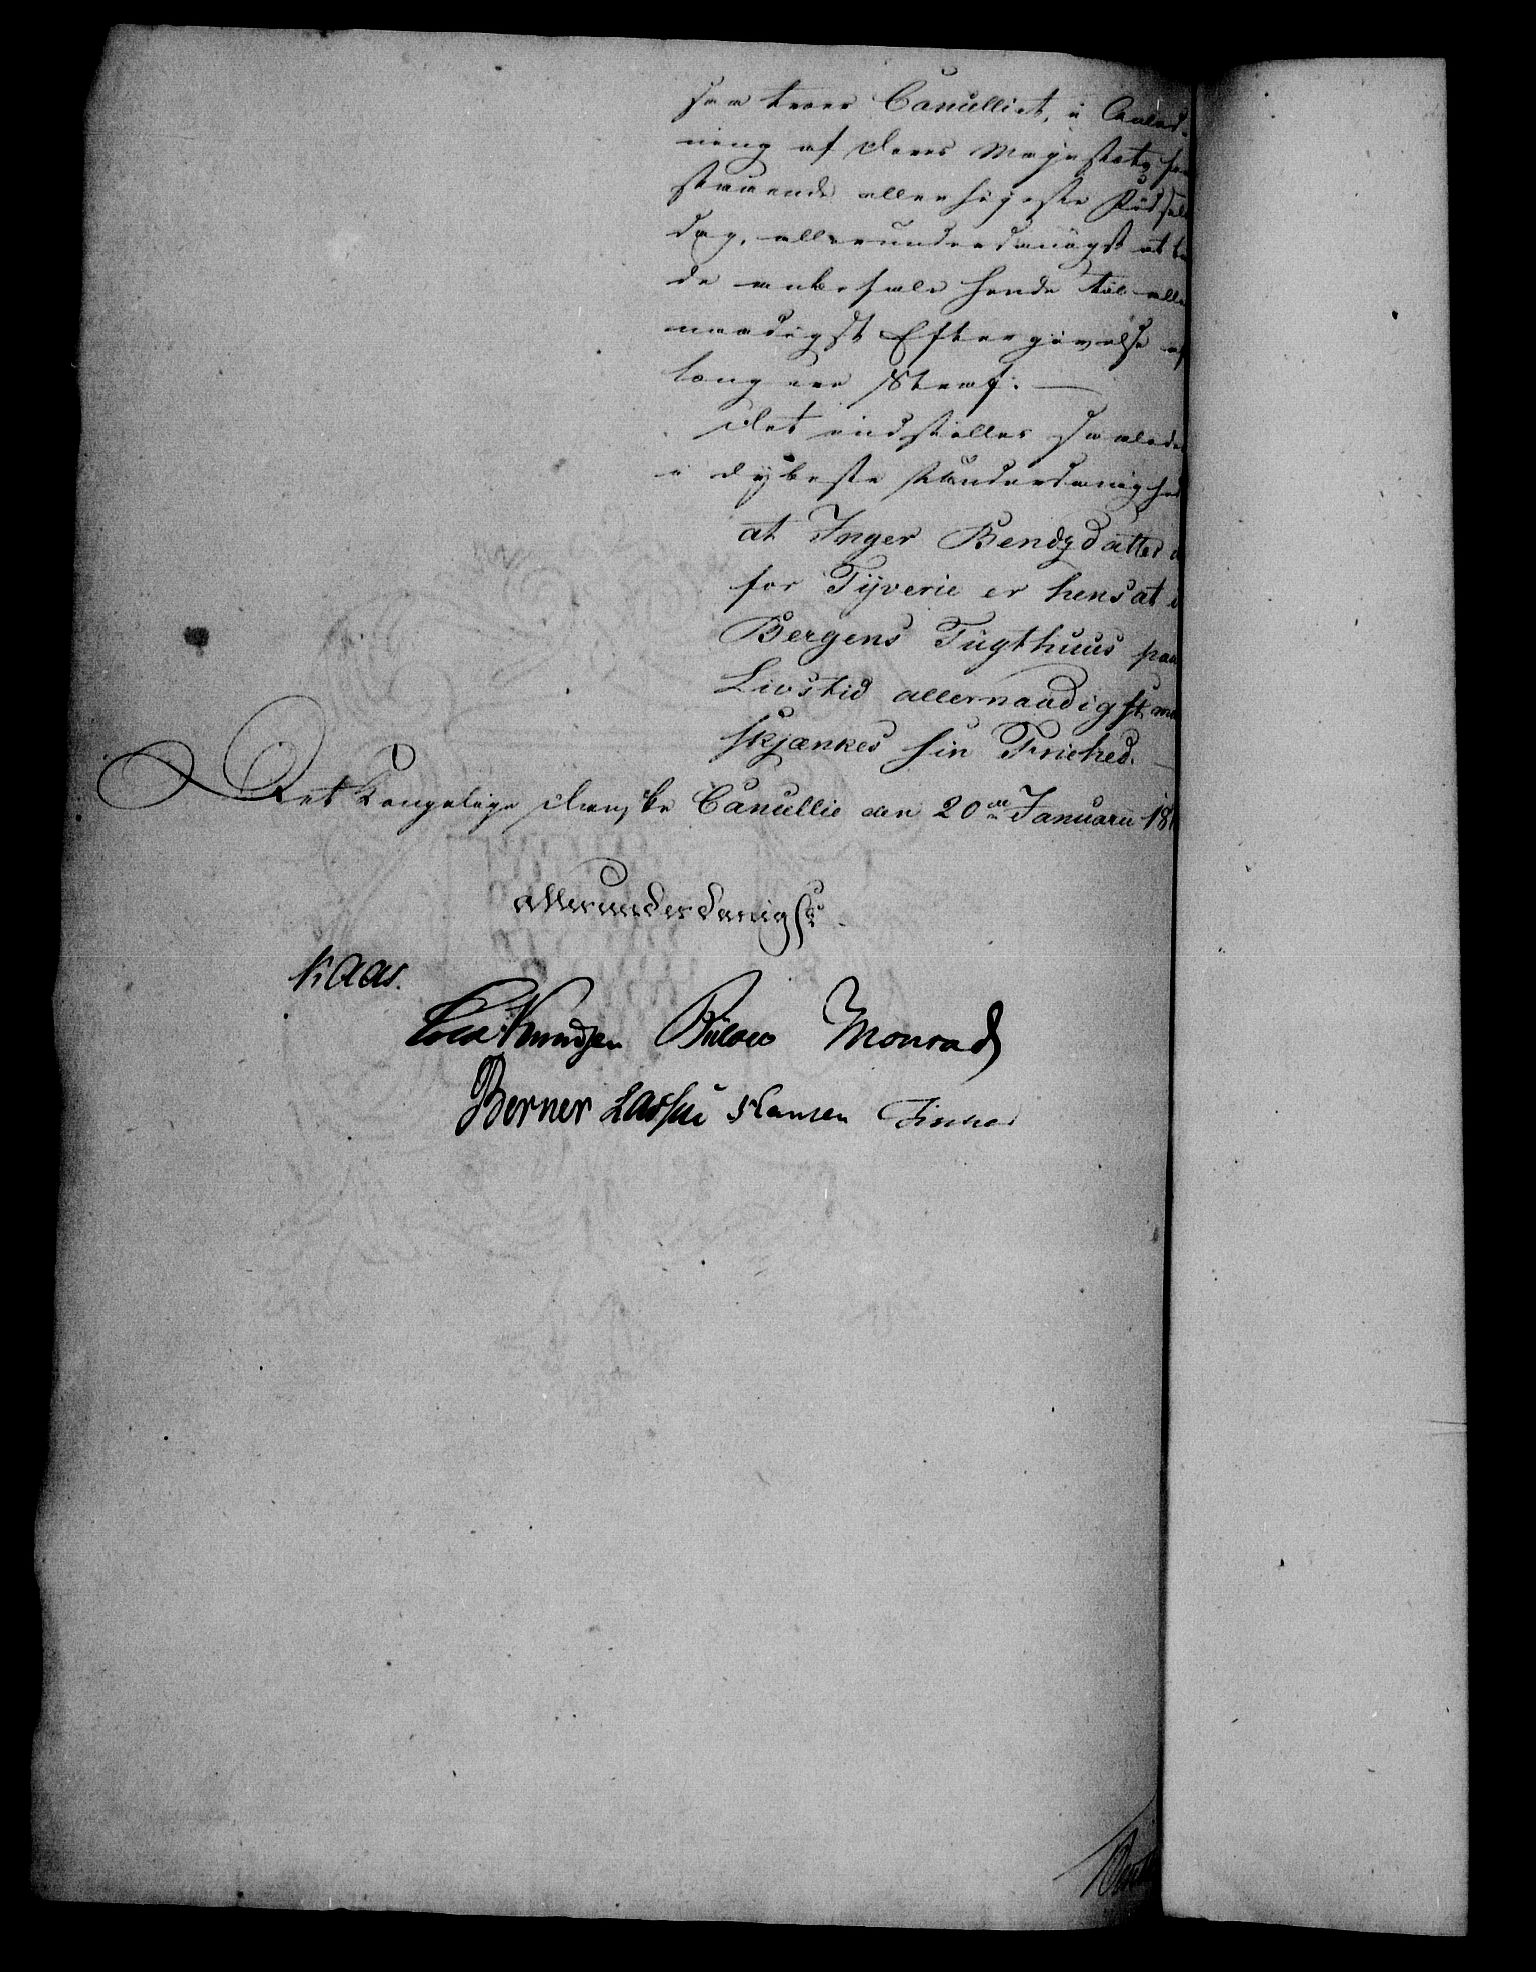 saa troer Cancelliet, i Anled-
ning af Deres Majestæts fore
staaende allerhøieste Fødsels
dag, allerunderdanigst at tu
de anbefale hende til aller
naadigst Eftergivelse af
længere Straf. —
Det indstilles saaledes
i dybeste Underdanighed
at Inger Bendzdatter
for Tyverie er hensat i
Bergens Tugthuus paa
Livstid allernaadigst maa
skjænkes sin Friehed. —
Det Kongelige Danske Cancellie den 20de Januarii 181
allerunderdanigst
Kaas.
Cold Knudsen Bülow Monrad
Berner Lassen Hansen